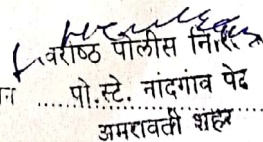 वरीष्ठ पोलीस नि
पो.स्टे. नांदगाव पेठ
अमरावती शहर